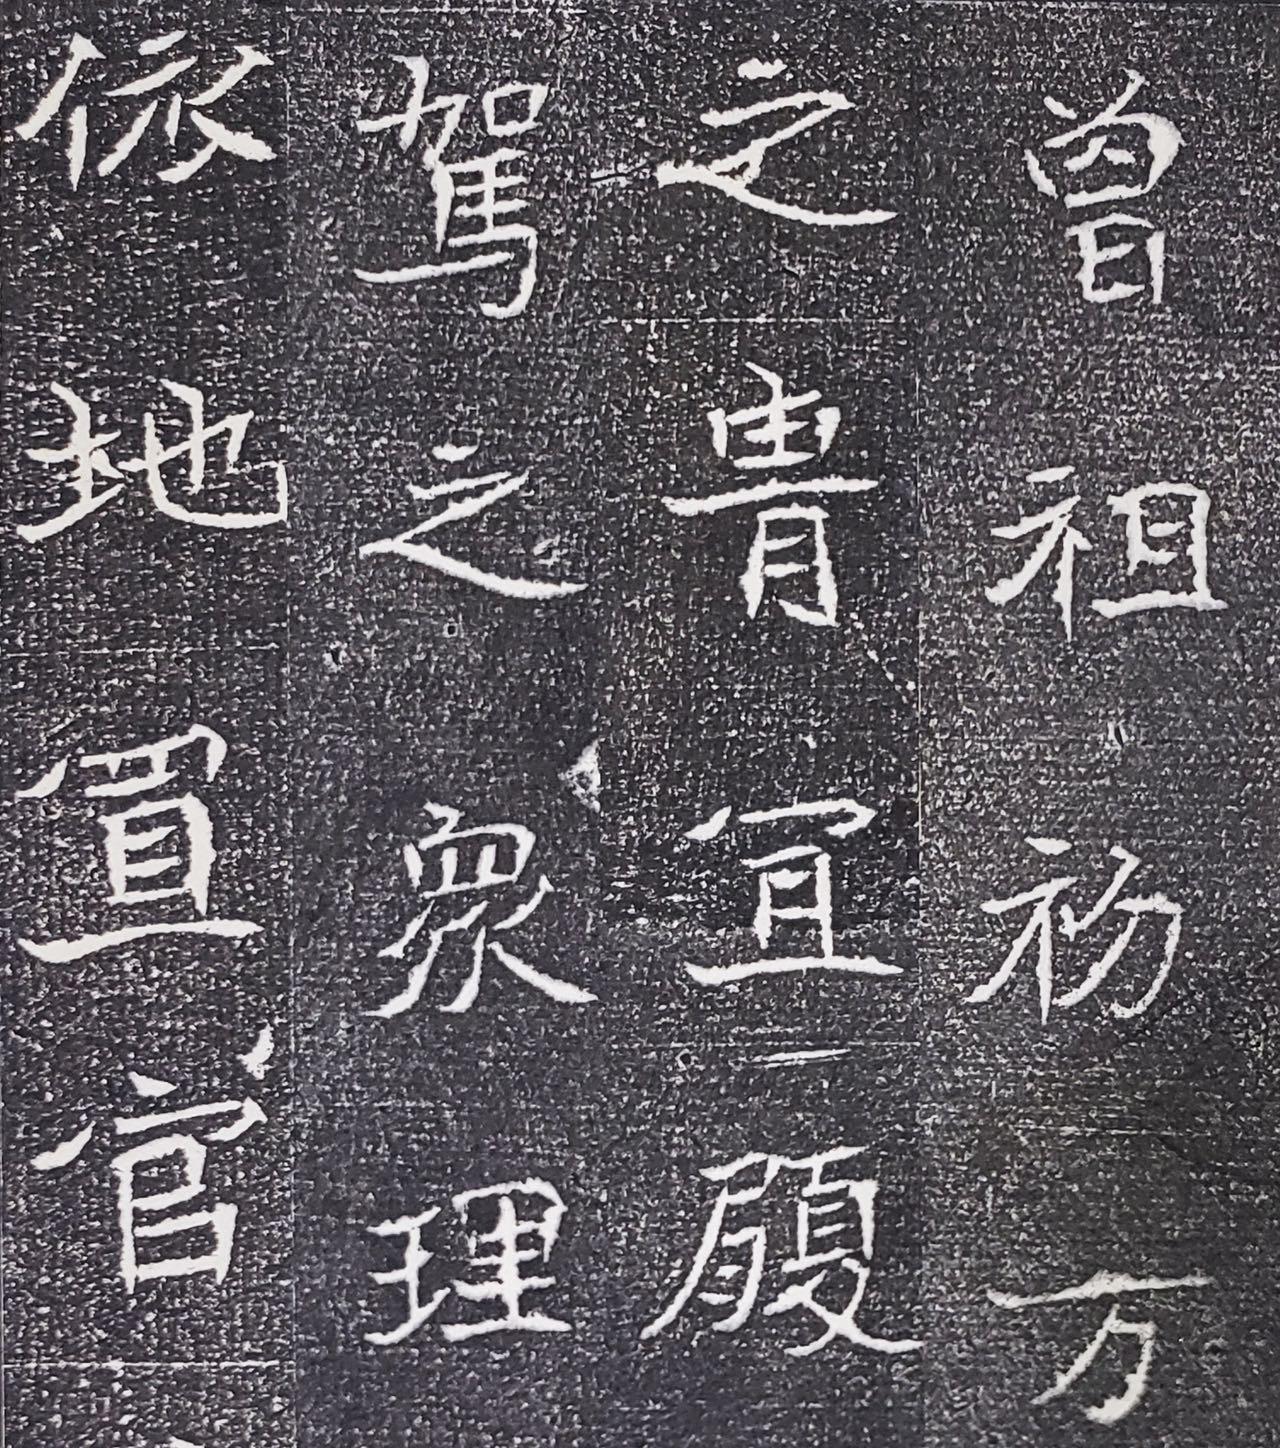 曾祖初万
之胄宜履
駕之衆理
依地置官